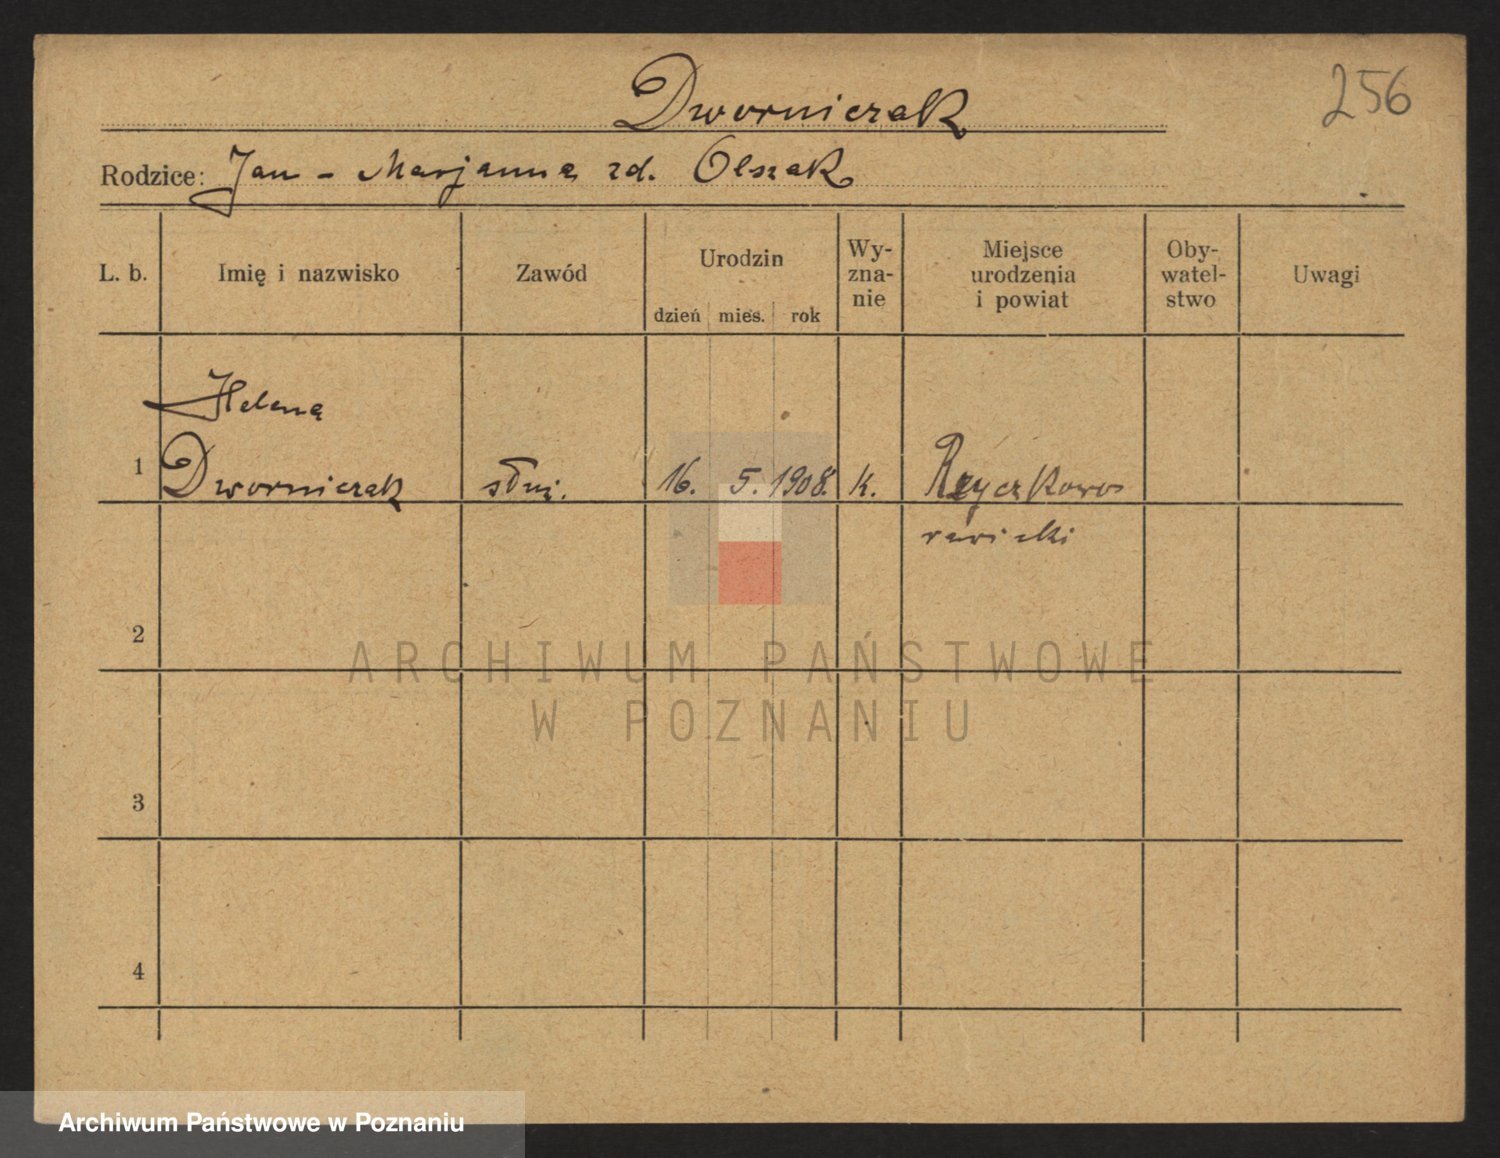 Dworniczak
256
Rodzice: Jan - Marjanna zd. Olszak
L. b.
Imię i nazwisko
Zawód
Urodzin
dzień mies. rok
Wy-
zna-
nie
Miejsce
urodzenia
i powiat
Oby-
watel-
stwo
Uwagi
Helena
1 Dworniczak służ. 16. 5. 1908. k. Ryczkowo
rawicki
2
3
4
ARCHIWUM PAŃSTWOWE
W POZNANIU
Archiwum Państwowe w Poznaniu